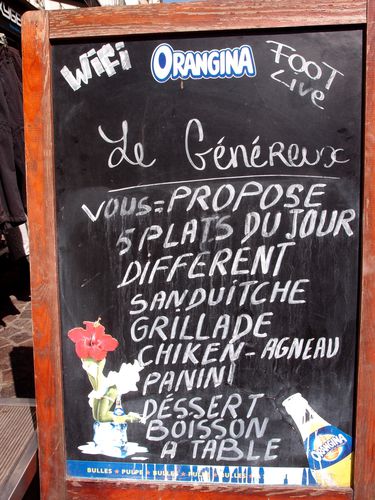 WiFi ORANGINA FOOT
Live
Le Généreux
VOUS = PROPOSE
5 PLATS DU JOUR
DIFFERENT
SANDUITCHE
GRILLADE
CHIKEN - AGNEAU
PANINI
DÉSSERT
BOISSON
A TABLE
ORANGINA
BULLES ★ PULPE ★ BULLES ★ PULPE ★ BULLES